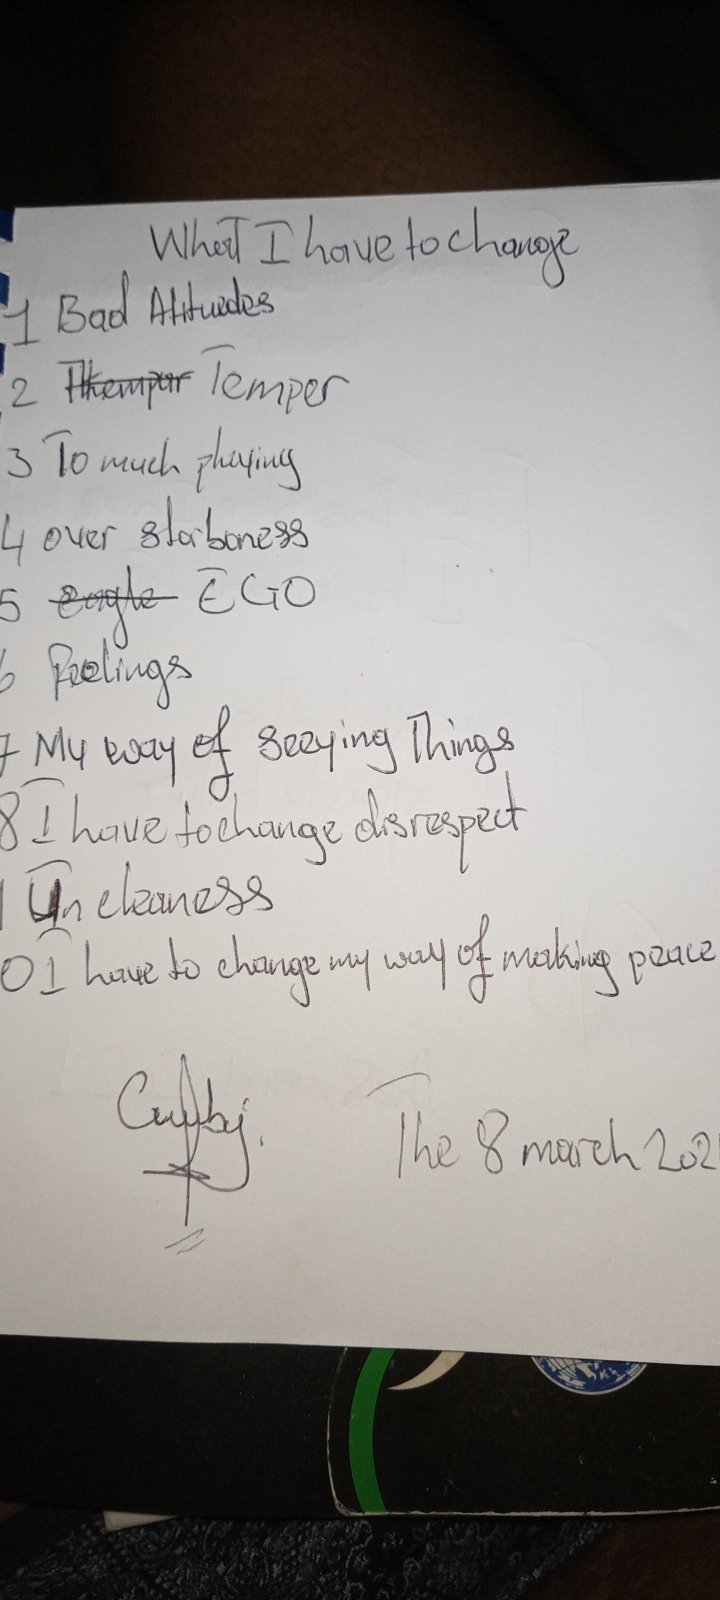 What I have to change
1 Bad Atituedes
2 Temper
3 To much playing
4 over storboness
5 EGO
6 Feelings
7 My way of seeying Things
8 I have to change disrespect
Un cleaness
0 I have to change my way of making peace
The 8 march 202